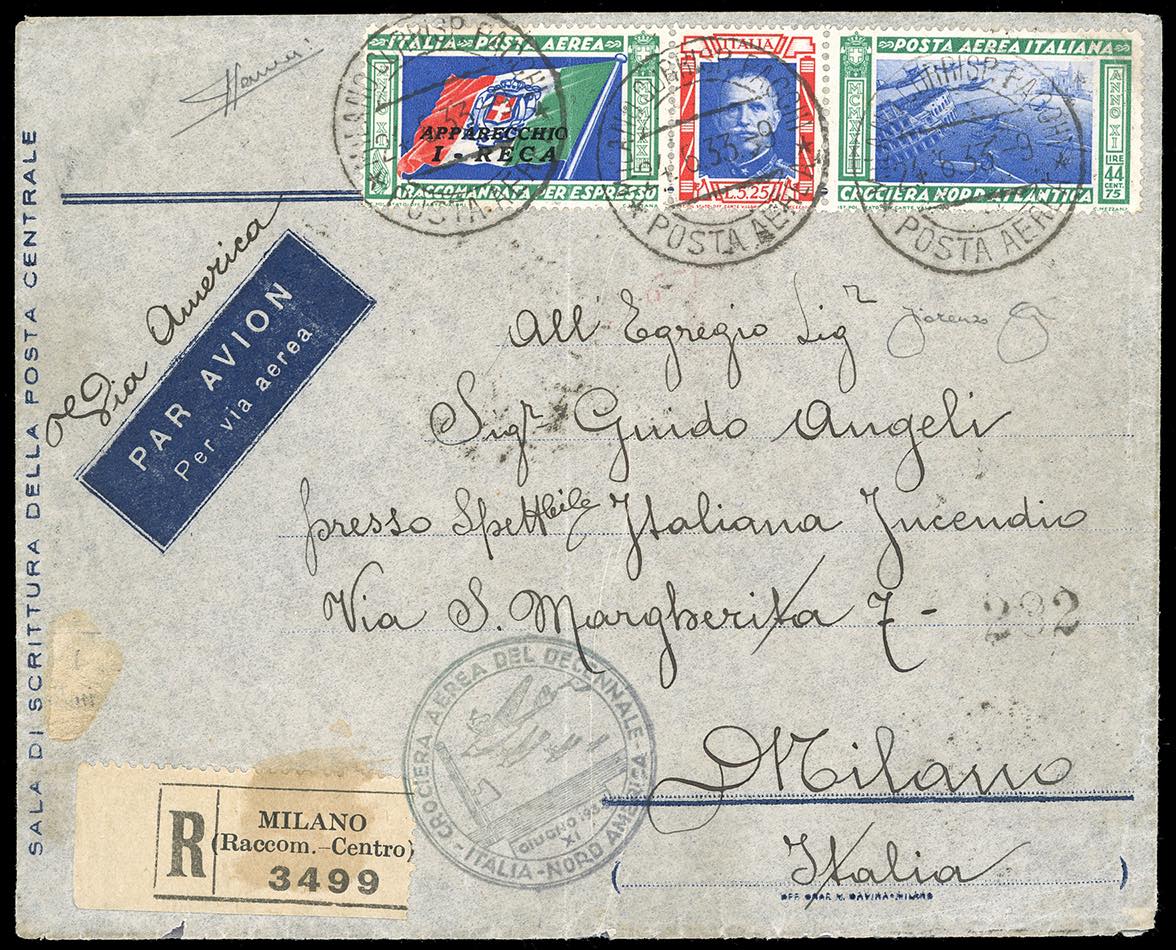 ITALIA - POSTA AEREA
APPARECCHIO
I - RECA
RACCOMANDATA PER ESPRESSO
ITALIA
L.5.25
POSTA AEREA ITALIANA
MCMXXXIII
ANNO XI
LIRE
44
CENT.
75
CROCIERA NORD ATLANTICA
C. MEZZANA
POSTA AEREA
6.33
POSTA AEREA
6.33-9
POSTA AEREA
24.6.33-9
SALA DI SCRITTURA DELLA POSTA CENTRALE
Via America
PAR AVION
Per via aerea
All Egregio Sigr
Sigr Guido Angeli
presso Spettbile Italiana Incendio
Via S. Margherita 7 -
232
Milano
Italia
CROCIERA AEREA DEL DECENNALE
ITALIA - NORD AMERICA
GIUGNO 1933
XI
R
MILANO
(Raccom.-Centro)
3499